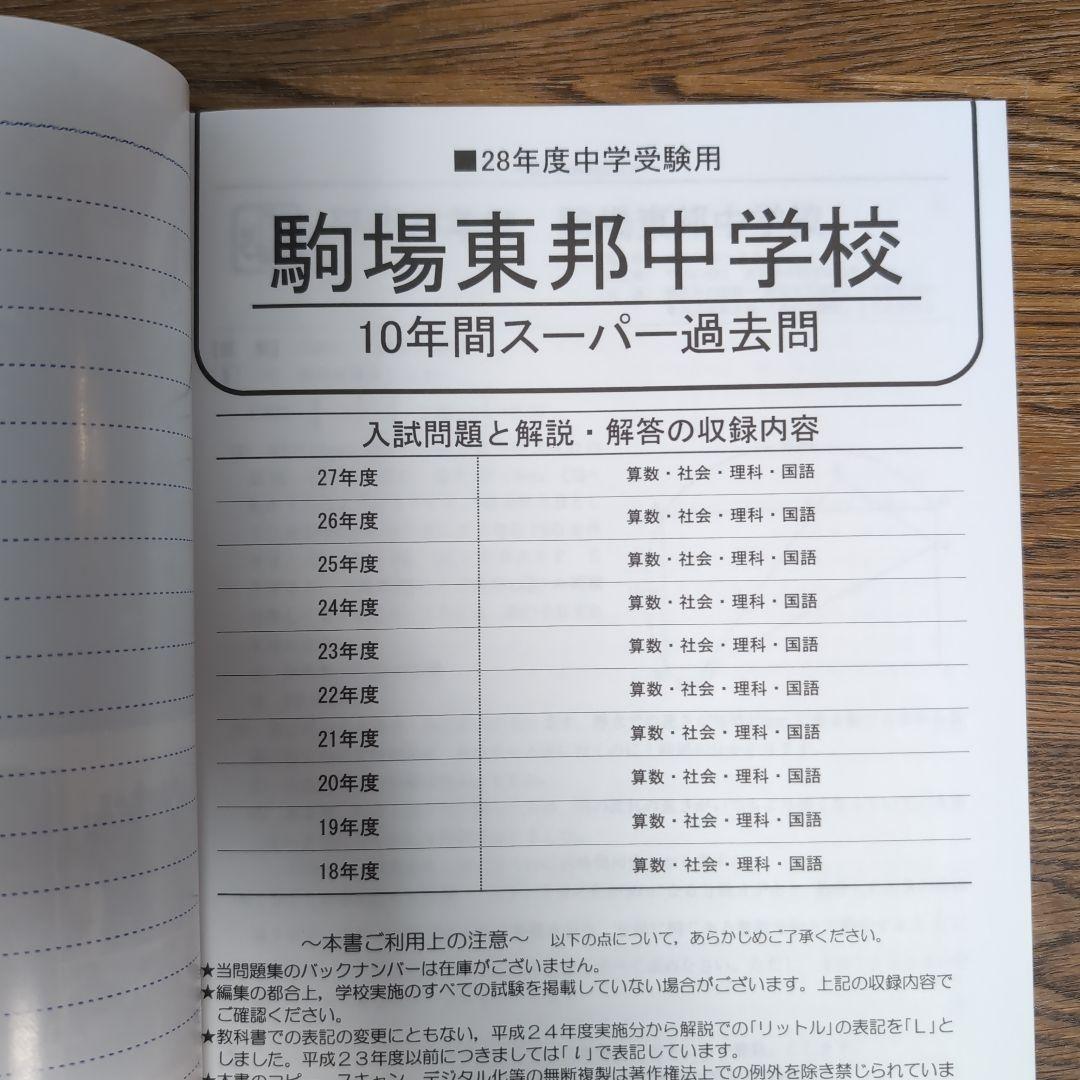 ■28年度中学受験用
駒場東邦中学校
10年間スーパー過去問
入試問題と解説・解答の収録内容
27年度 算数・社会・理科・国語
26年度 算数・社会・理科・国語
25年度 算数・社会・理科・国語
24年度 算数・社会・理科・国語
23年度 算数・社会・理科・国語
22年度 算数・社会・理科・国語
21年度 算数・社会・理科・国語
20年度 算数・社会・理科・国語
19年度 算数・社会・理科・国語
18年度 算数・社会・理科・国語
～本書ご利用上の注意～ 以下の点について，あらかじめご了承ください。
★当問題集のバックナンバーは在庫がございません。
★編集の都合上，学校実施のすべての試験を掲載していない場合がございます。上記の収録内容で
ご確認ください。
★教科書での表記の変更にともない，平成24年度実施分から解説での「リットル」の表記を「L」と
しました。平成23年度以前につきましては「l」で表記しています。
★本書のコピー，スキャン，デジタル化等の無断複製は著作権法上での例外を除き禁じられていま